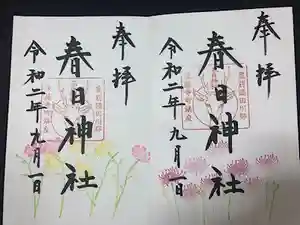 奉拝
春日神社
令和二年九月一日
奉拝
春日神社
令和二年九月一日